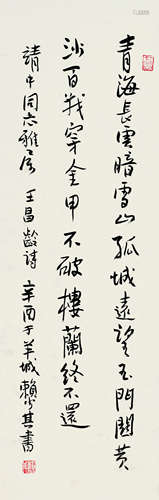 青海長雲暗雪山孤城遠望玉門關黄
沙百戰穿金甲不破樓蘭終不還
靖中同志雅屬 王昌齡詩 辛酉于羊城賴少其書